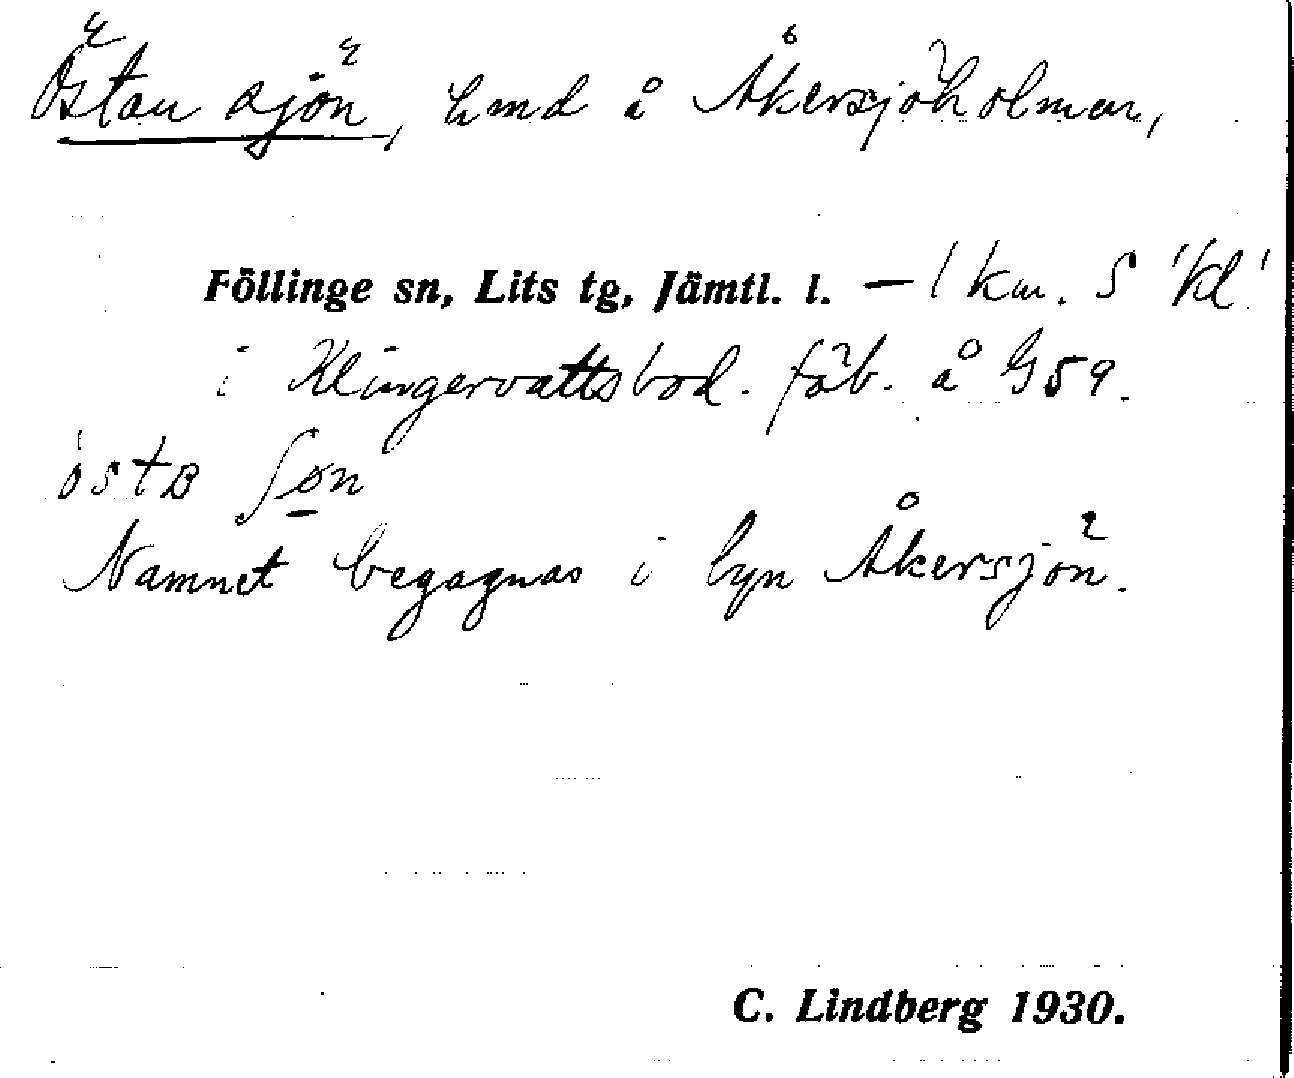 Östan sjön, hmd å Åkersjöholmen,
Föllinge sn, Lits tg, Jämtl. l. — 1 km. S 'kl'
i Klingervattsbod. fäb. å G59.
östɒ ʃøn
Namnet begagnas i byn Åkersjön.
C. Lindberg 1930.